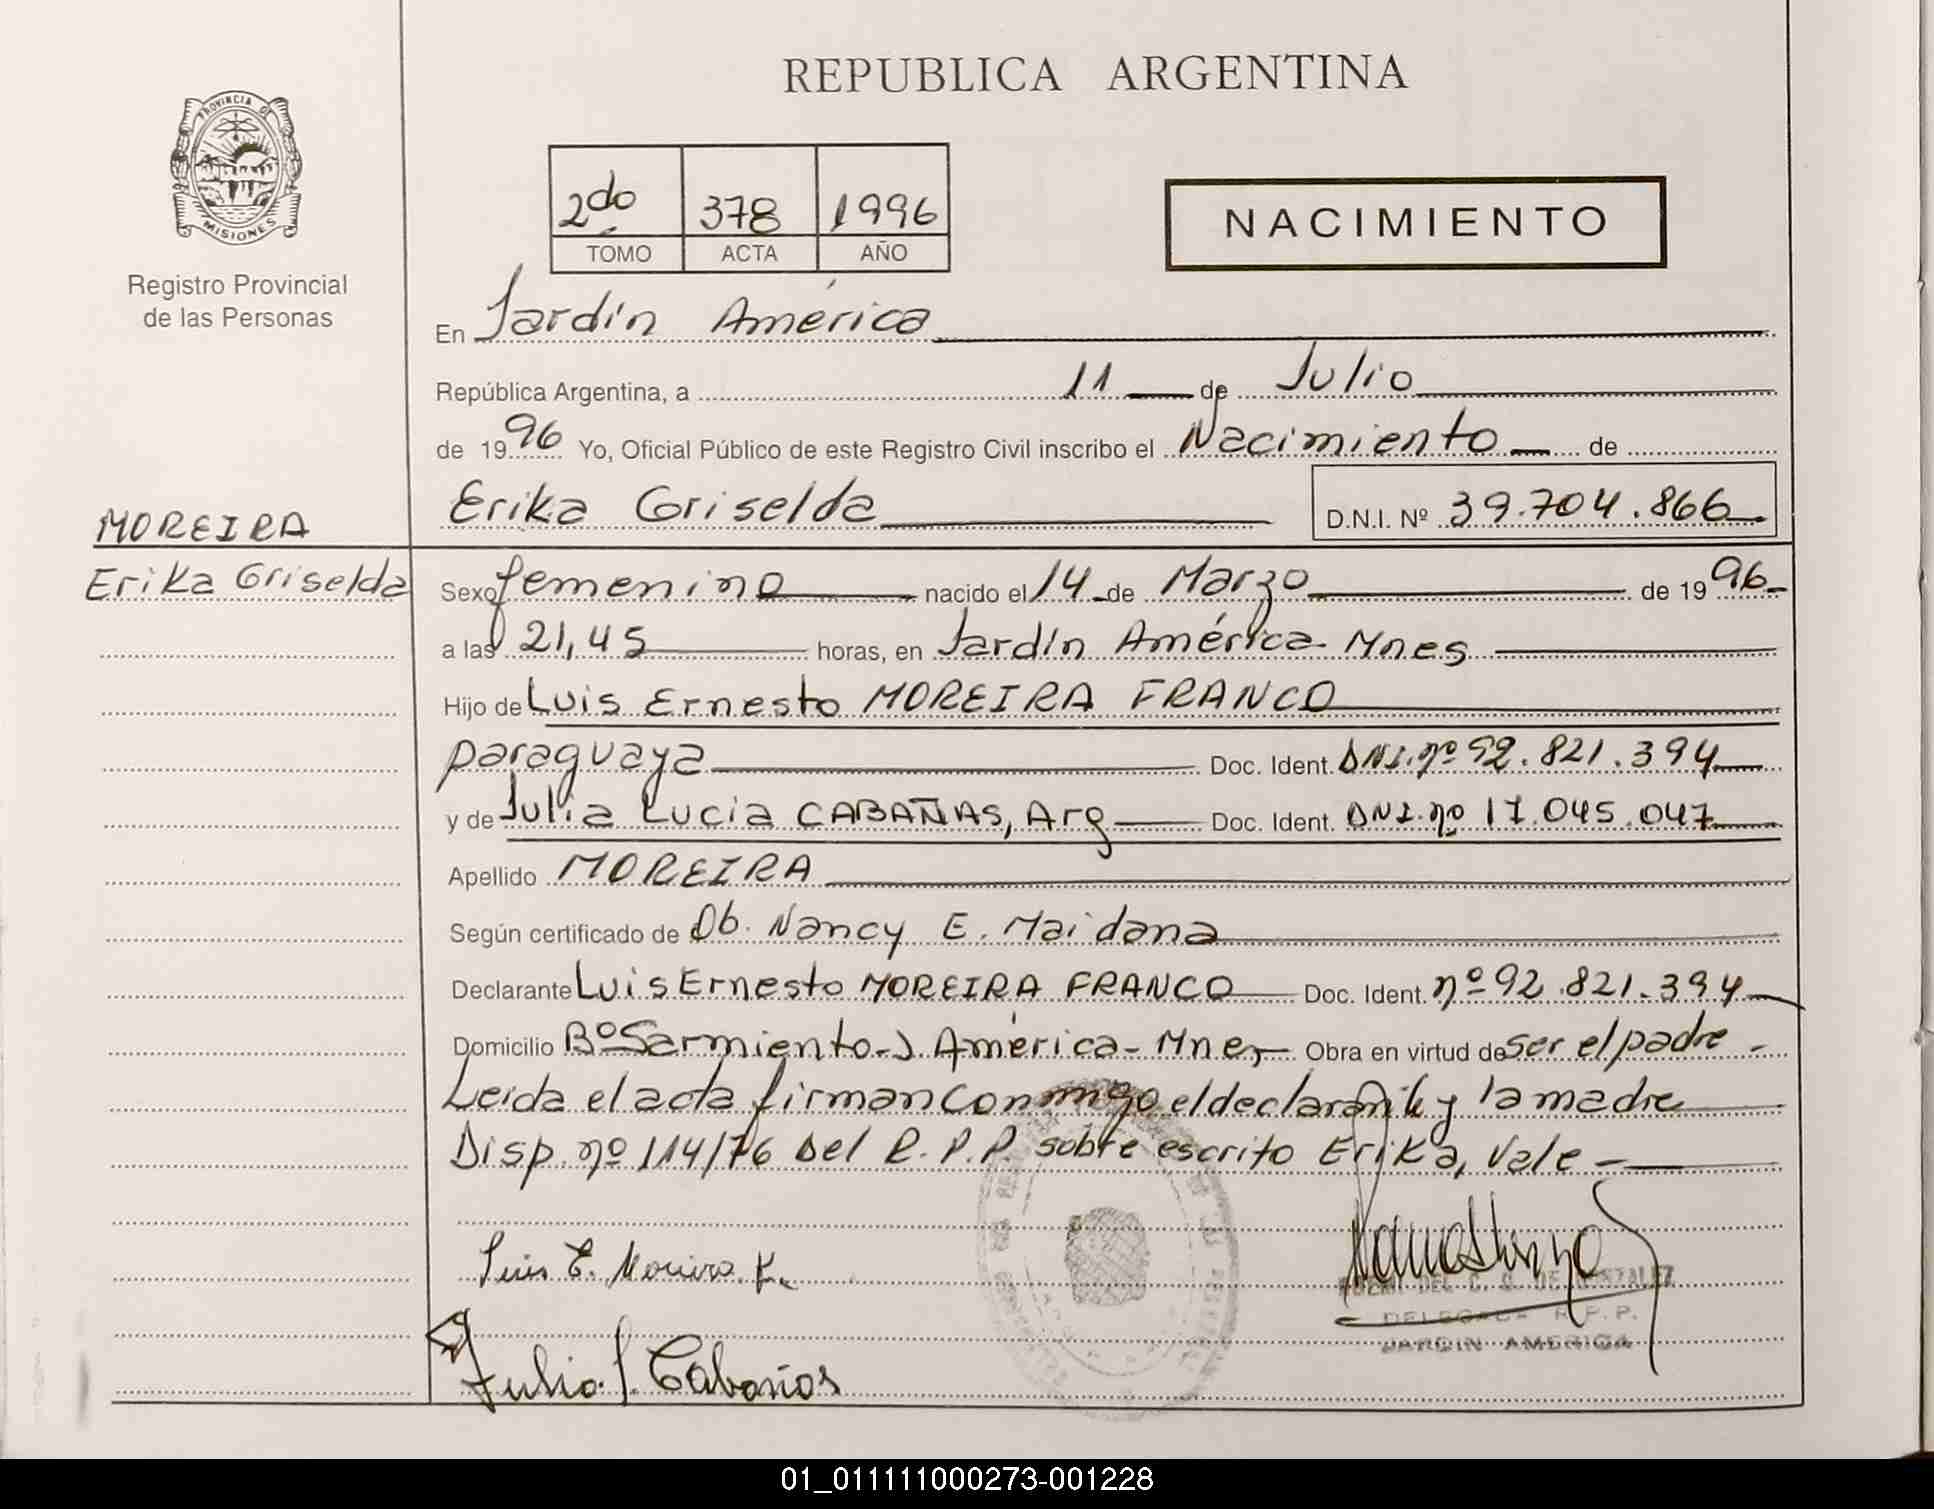 REPUBLICA ARGENTINA
PROVINCIA DE
MISIONES
Registro Provincial
de las Personas
2do 378 1996
TOMO ACTA AÑO
NACIMIENTO
En Jardín América
República Argentina, a 11 de Julio
de 1996 Yo, Oficial Público de este Registro Civil inscribo el Nacimiento de
Erika Griselda D.N.I. Nº 39.704.866
MOREIRA
Erika Griselda
Sexo femenino nacido el 14 de Marzo de 1996
a las 21,45 horas, en Jardín América Mnes
Hijo de Luis Ernesto MOREIRA FRANCO
paraguaya Doc. Ident. DNI. nº 92.821.394
y de Julia Lucia CABAÑAS, Arg Doc. Ident. DNI. nº 17.045.047
Apellido MOREIRA
Según certificado de Ob. Nancy E. Maidana
Declarante Luis Ernesto MOREIRA FRANCO Doc. Ident. nº 92.821.394
Domicilio Bº Sarmiento - J. América - Mnes Obra en virtud de ser el padre -
Leida el acta firman conmigo el declarante y la madre
Disp. nº 114/76 Del R.P.P. sobre escrito Erika, Vale -
Luis E. Moreira F.
DELEGADA R.P.P.
JARDIN AMERICA
Julia L. Cabañas
01_011111000273-001228